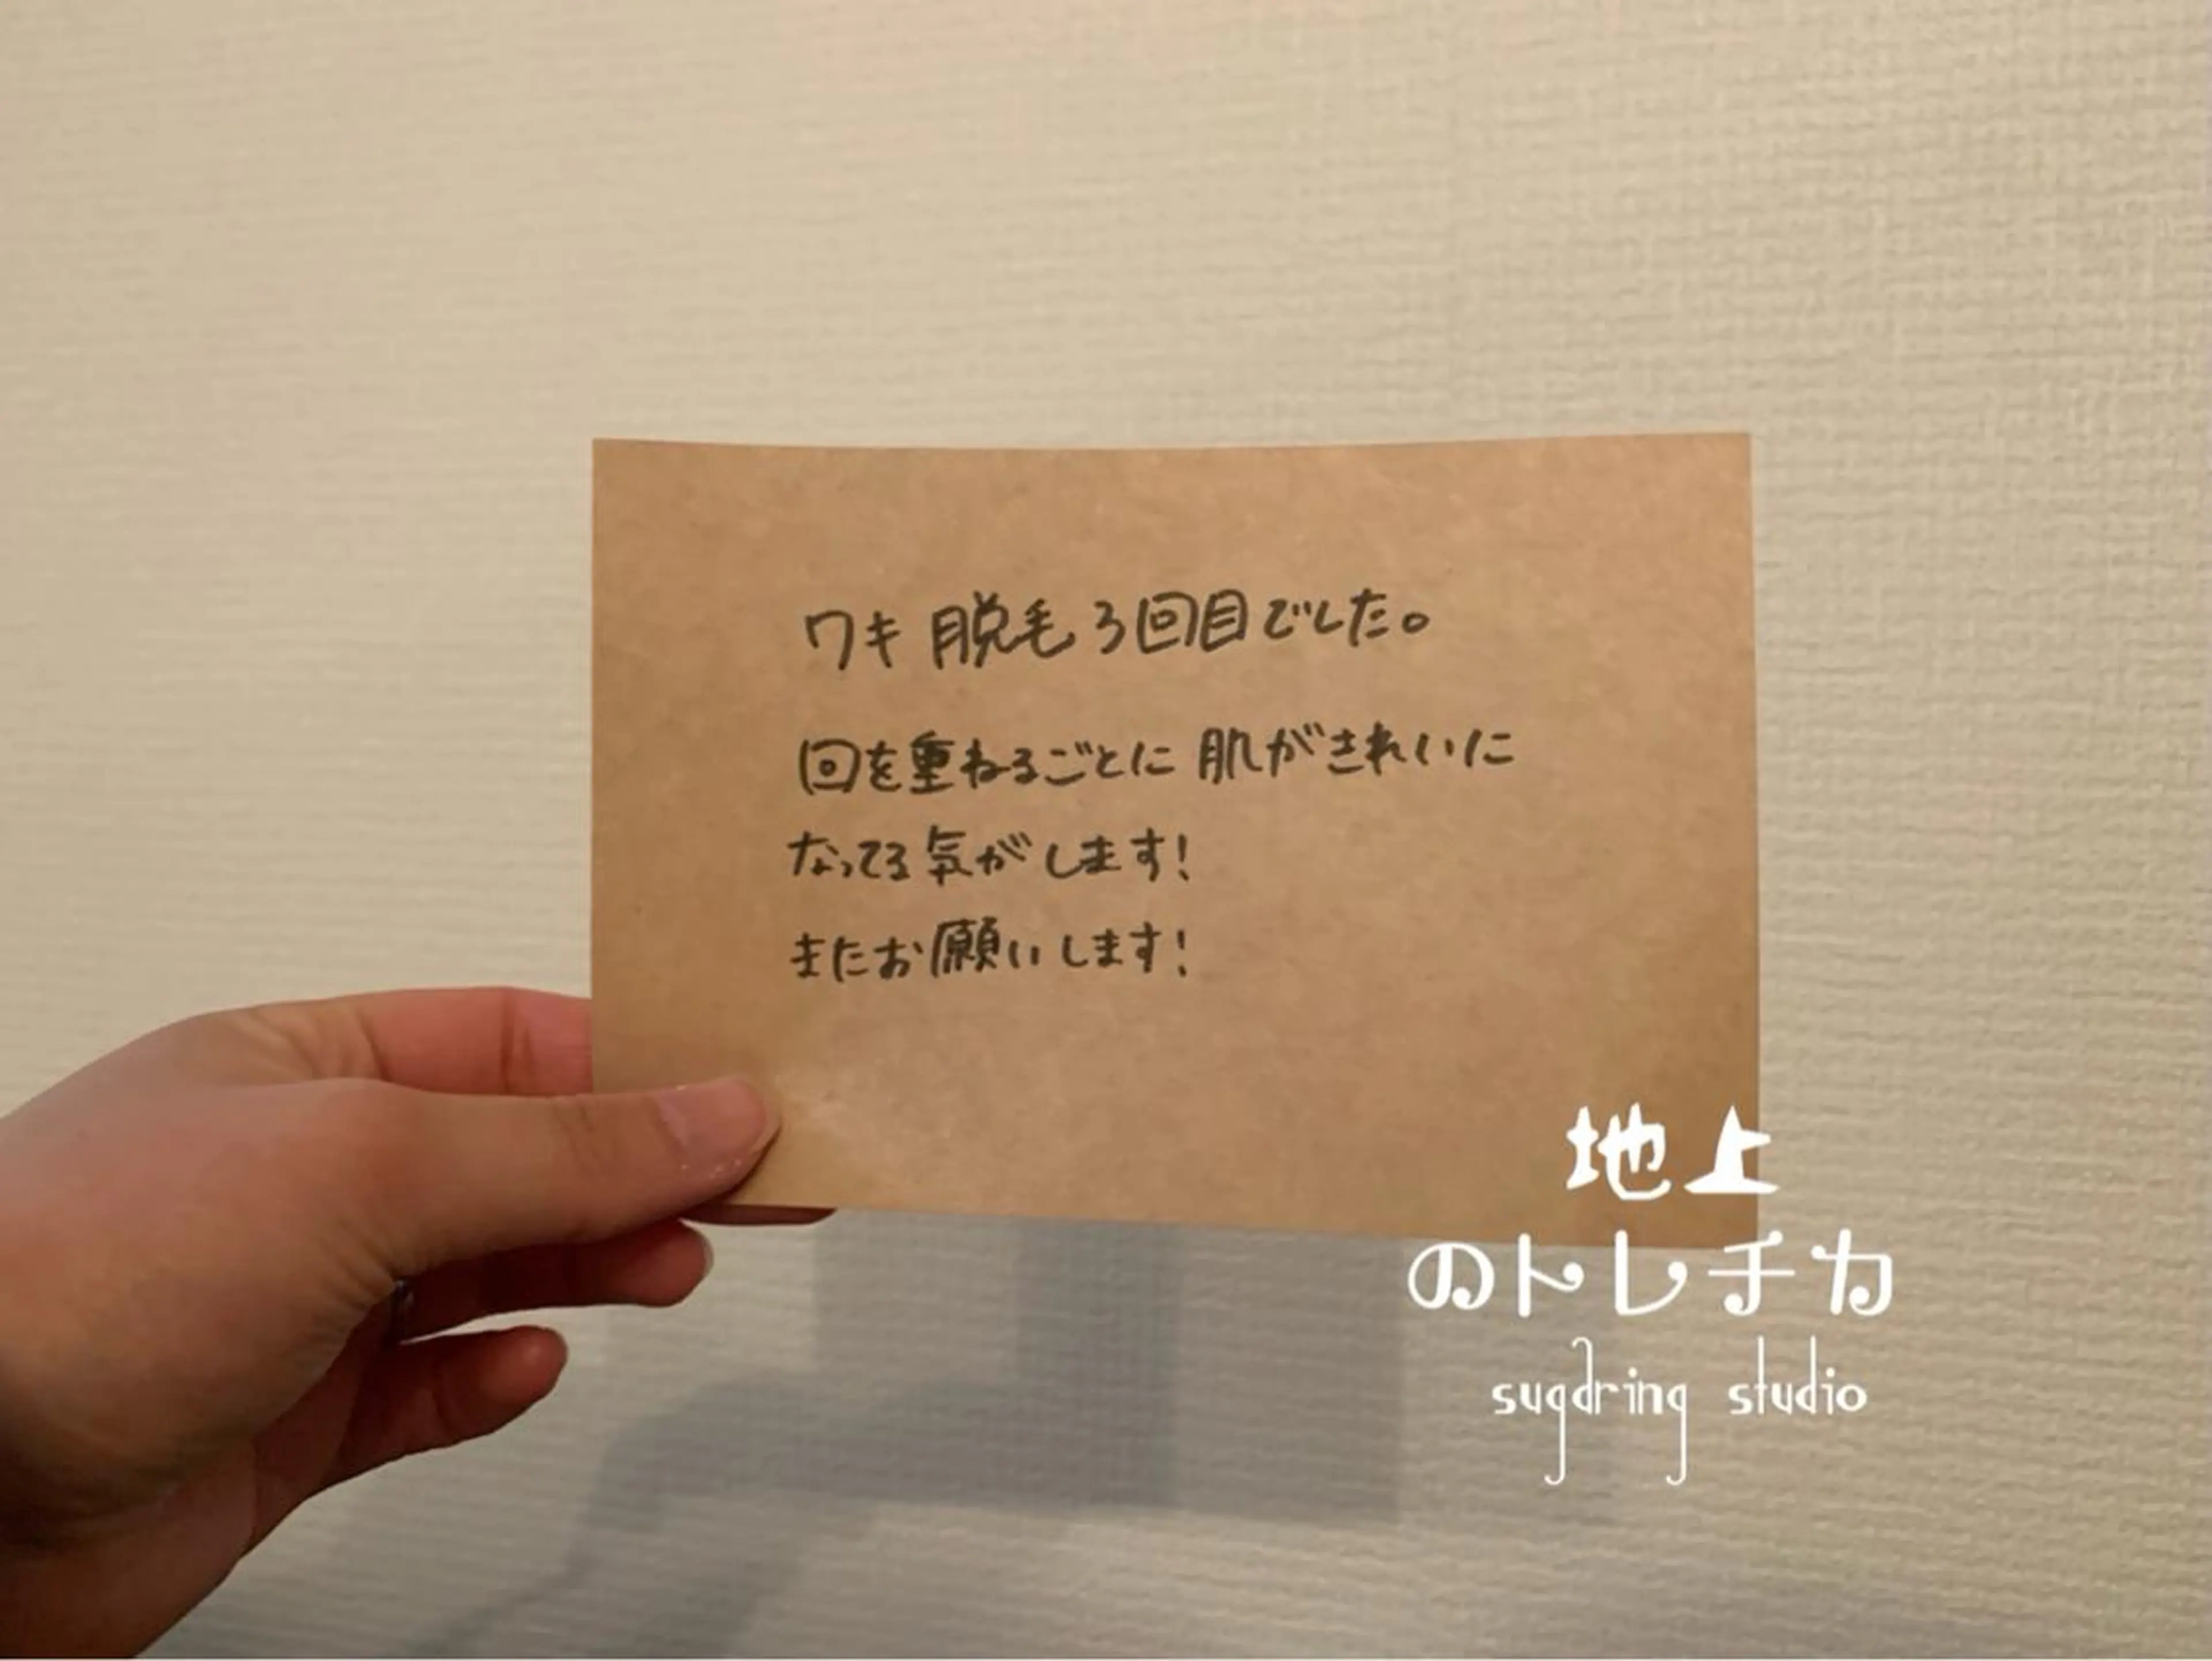 ワキ 脱毛 3回目でした。
回を重ねるごとに 肌がきれいに
なってる気がします!
またお願いします!
地上
のトレチカ
sugaring studio